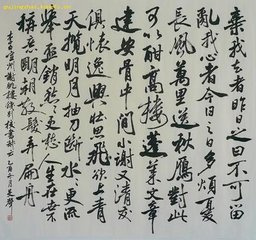 棄我去者昨日之日不可留
亂我心者今日之日多煩憂
長風萬里送秋鴈對此
可以酣高樓蓬萊文章
建安骨中間小謝又清發
俱懷逸興壯思飛欲上青
天攬明月抽刀斷水更流
舉杯銷愁愁更愁人生在世不
稱意明朝散髮弄扁舟
李白宣州謝朓樓餞別校書叔云